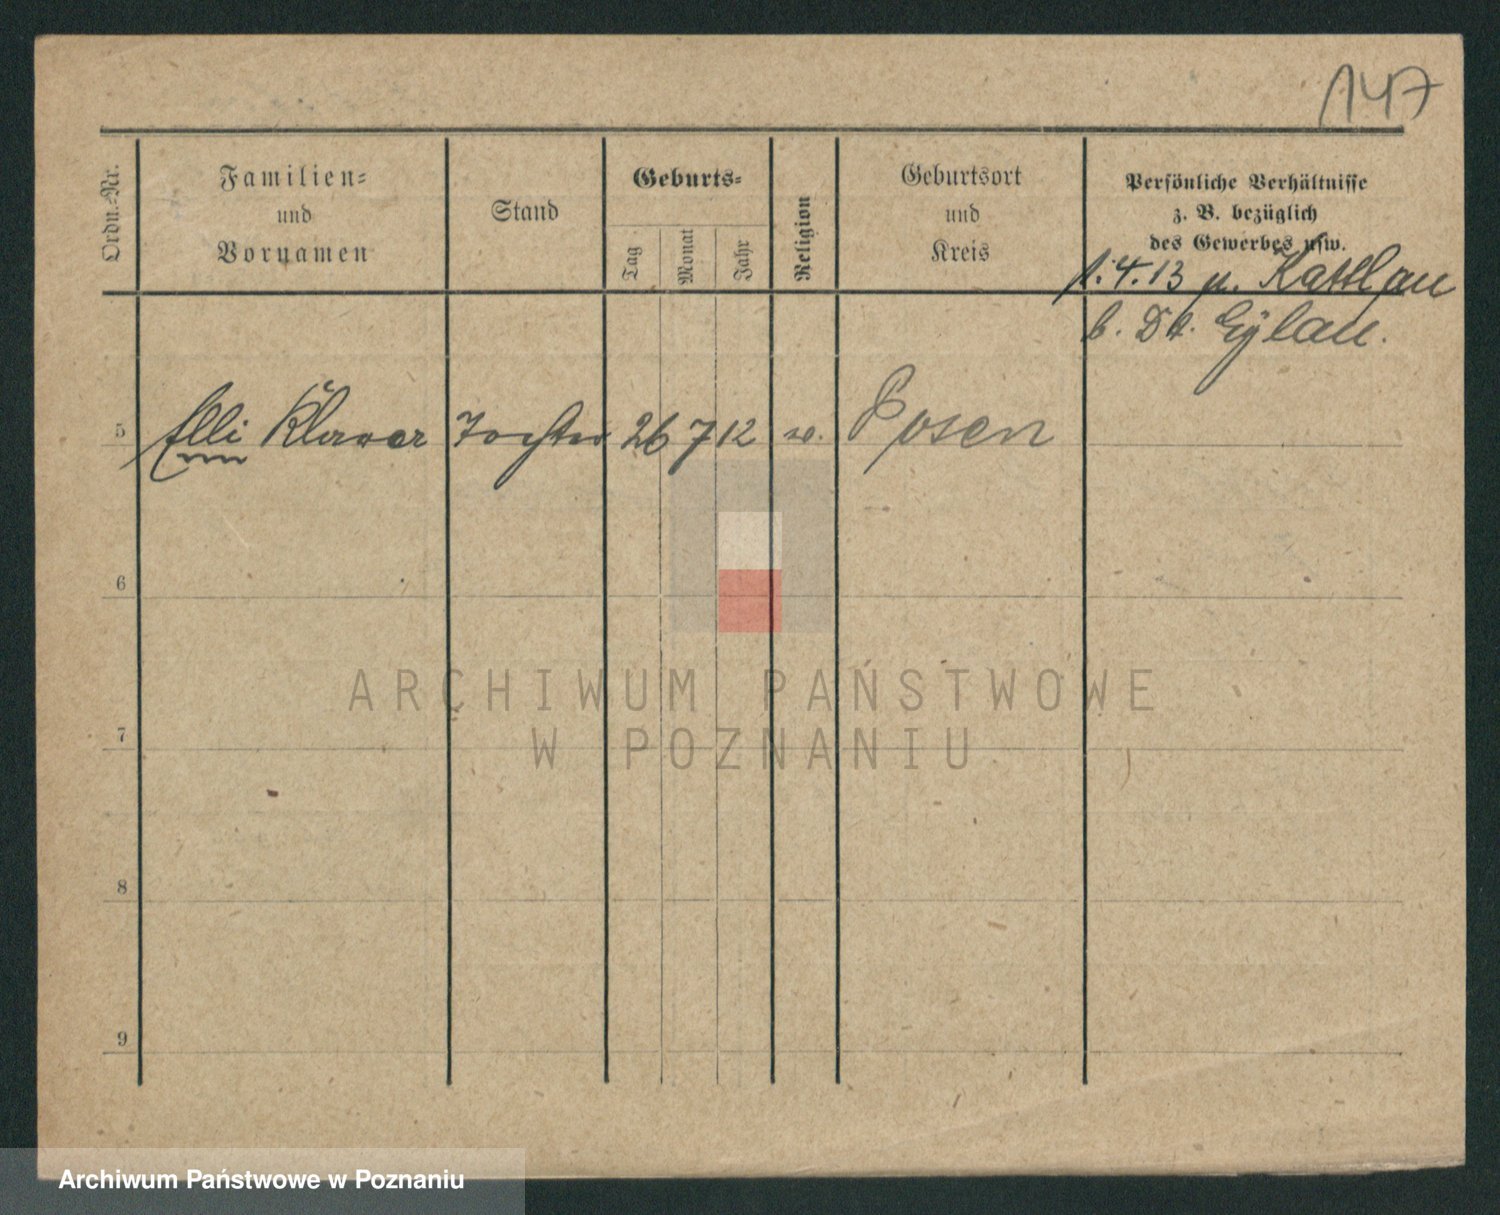 147
Ordn.-Nr.
Familien-
und
Vornamen
Stand
Geburts-
Tag
Monat
Jahr
Religion
Geburtsort
und
Kreis
Persönliche Verhältnisse
z. B. bezüglich
des Gewerbes usw.
1.4.13 n. Kattlau
b. Dt. Eylau.
5 Elli Tochter 26 7 12 Posen
6
7
8
9
ARCHIWUM PAŃSTWOWE
W POZNANIU
Archiwum Państwowe w Poznaniu